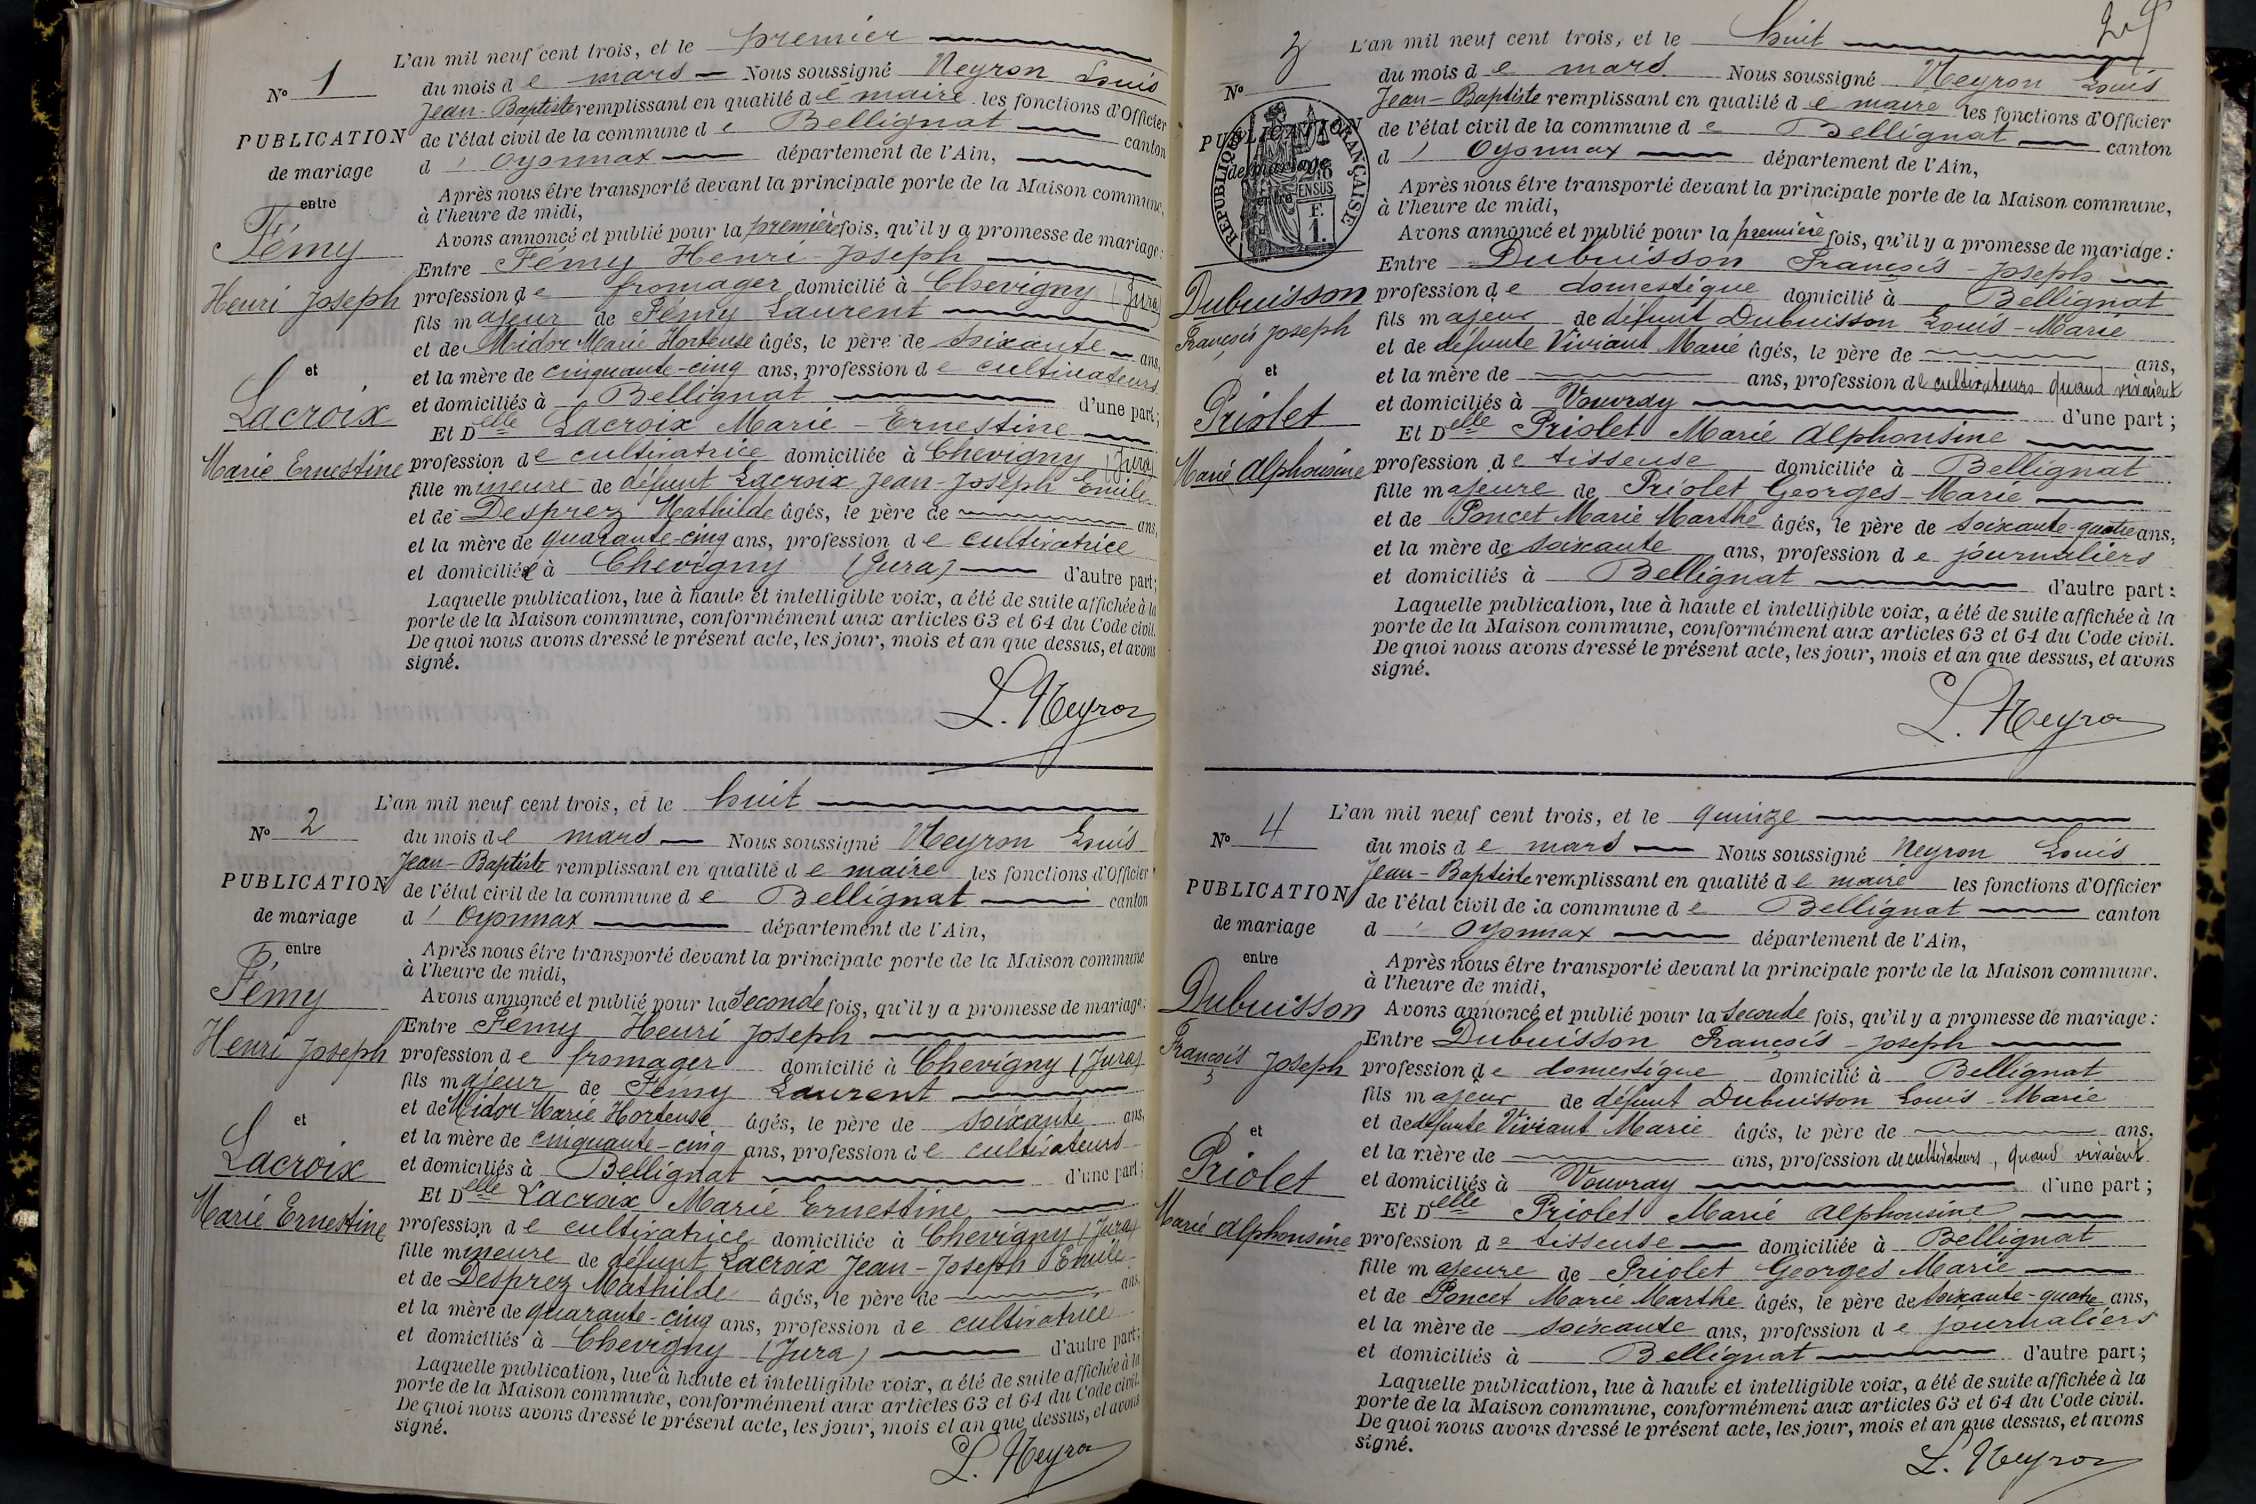 L'an mil neuf cent trois, et le premier
N° 1
du mois de mars Nous soussigné Neyron Louis
Jean-Baptiste remplissant en qualité de maire les fonctions d'Officier
PUBLICATION
de l'état civil de la commune de Bellignat canton
de mariage
d'Oyonnax département de l'Ain,
entre
Après nous être transporté devant la principale porte de la Maison commune,
à l'heure de midi,
Avons annoncé et publié pour la première fois, qu'il y a promesse de mariage:
Fémy
Henri Joseph
Entre Fémy Henri Joseph
profession de fromager domicilié à Chevigny (Jura)
fils majeur de Fémy Laurent
et de Midor Marie Hortense âgés, le père de soixante ans,
et
et la mère de cinquante-cinq ans, profession de cultivateurs
et domiciliés à Bellignat d'une part;
Lacroix
Marie Ernestine
Et Delle Lacroix Marie-Ernestine
profession de cultivatrice domiciliée à Chevigny (Jura)
fille mineure de défunt Lacroix Jean-Joseph Emile
et de Desprez Mathilde âgés, le père de ans,
et la mère de quarante-cinq ans, profession de cultivatrice
et domiciliée à Chevigny (Jura) d'autre part;
Laquelle publication, lue à haute et intelligible voix, a été de suite affichée à la
porte de la Maison commune, conformément aux articles 63 et 64 du Code civil.
De quoi nous avons dressé le présent acte, les jour, mois et an que dessus, et avons
signé.
L. Neyron
L'an mil neuf cent trois, et le huit
N° 2
du mois de mars Nous soussigné Neyron Louis
Jean-Baptiste remplissant en qualité de maire les fonctions d'Officier
PUBLICATION
de l'état civil de la commune de Bellignat canton
de mariage
d'Oyonnax département de l'Ain,
entre
Après nous être transporté devant la principale porte de la Maison commune
à l'heure de midi,
Avons annoncé et publié pour la seconde fois, qu'il y a promesse de mariage:
Fémy
Henri Joseph
Entre Fémy Henri Joseph
profession de fromager domicilié à Chevigny (Jura)
fils majeur de Fémy Laurent
et de Midor Marie Hortense âgés, le père de soixante ans,
et
et la mère de cinquante-cinq ans, profession de cultivateurs
et domiciliés à Bellignat d'une part;
Lacroix
Marie Ernestine
Et Delle Lacroix Marie Ernestine
profession de cultivatrice domiciliée à Chevigny (Jura)
fille mineure de défunt Lacroix Jean-Joseph Emile
et de Desprez Mathilde âgés, le père de ans,
et la mère de quarante-cinq ans, profession de cultivatrice
et domiciliés à Chevigny (Jura) d'autre part;
Laquelle publication, lue à haute et intelligible voix, a été de suite affichée à la
porte de la Maison commune, conformément aux articles 63 et 64 du Code civil.
De quoi nous avons dressé le présent acte, les jour, mois et an que dessus, et avons
signé.
L. Neyron
L'an mil neuf cent trois, et le huit
N° 3
du mois de mars Nous soussigné Neyron Louis
Jean-Baptiste remplissant en qualité de maire les fonctions d'Officier
PUBLICATION
de l'état civil de la commune de Bellignat canton
de mariage
d'Oyonnax département de l'Ain,
entre
RÉPUBLIQUE FRANÇAISE
Après nous être transporté devant la principale porte de la Maison commune,
à l'heure de midi,
Avons annoncé et publié pour la première fois, qu'il y a promesse de mariage:
Dubuisson
François Joseph
Entre Dubuisson François-Joseph
profession de domestique domicilié à Bellignat
fils majeur de défunt Dubuisson Louis-Marie
et de défunte Viviant Marie âgés, le père de ans,
et
et la mère de ans, profession de cultivateurs quand vivaient
et domiciliés à Vouvray d'une part;
Priolet
Marie Alphonsine
Et Delle Priolet Marie Alphonsine
profession de tisseuse domiciliée à Bellignat
fille majeure de Priolet Georges-Marie
et de Poncet Marie Marthe âgés, le père de soixante-quatre ans,
et la mère de soixante ans, profession de journaliers
et domiciliés à Bellignat d'autre part:
Laquelle publication, lue à haute et intelligible voix, a été de suite affichée à la
porte de la Maison commune, conformément aux articles 63 et 64 du Code civil.
De quoi nous avons dressé le présent acte, les jour, mois et an que dessus, et avons
signé.
L. Neyron
L'an mil neuf cent trois, et le quinze
N° 4
du mois de mars Nous soussigné Neyron Louis
Jean-Baptiste remplissant en qualité de maire les fonctions d'Officier
PUBLICATION
de l'état civil de la commune de Bellignat canton
de mariage
d'Oyonnax département de l'Ain,
entre
Après nous être transporté devant la principale porte de la Maison commune.
à l'heure de midi,
Dubuisson
François Joseph
Avons annoncé et publié pour la seconde fois, qu'il y a promesse de mariage:
Entre Dubuisson François-Joseph
profession de domestique domicilié à Bellignat
fils majeur de défunt Dubuisson Louis-Marie
et de défunte Viviant Marie âgés, le père de ans,
et
et la mère de ans, profession de cultivateurs, quand vivaient
et domiciliés à Vouvray d'une part;
Priolet
Marie Alphonsine
Et Delle Priolet Marie Alphonsine
profession de tisseuse domiciliée à Bellignat
fille majeure de Priolet Georges Marie
et de Poncet Marie Marthe âgés, le père de soixante-quatre ans,
et la mère de soixante ans, profession de journaliers
et domiciliés à Bellignat d'autre part;
Laquelle publication, lue à haute et intelligible voix, a été de suite affichée à la
porte de la Maison commune, conformément aux articles 63 et 64 du Code civil.
De quoi nous avons dressé le présent acte, les jour, mois et an que dessus, et avons
signé.
L. Neyron